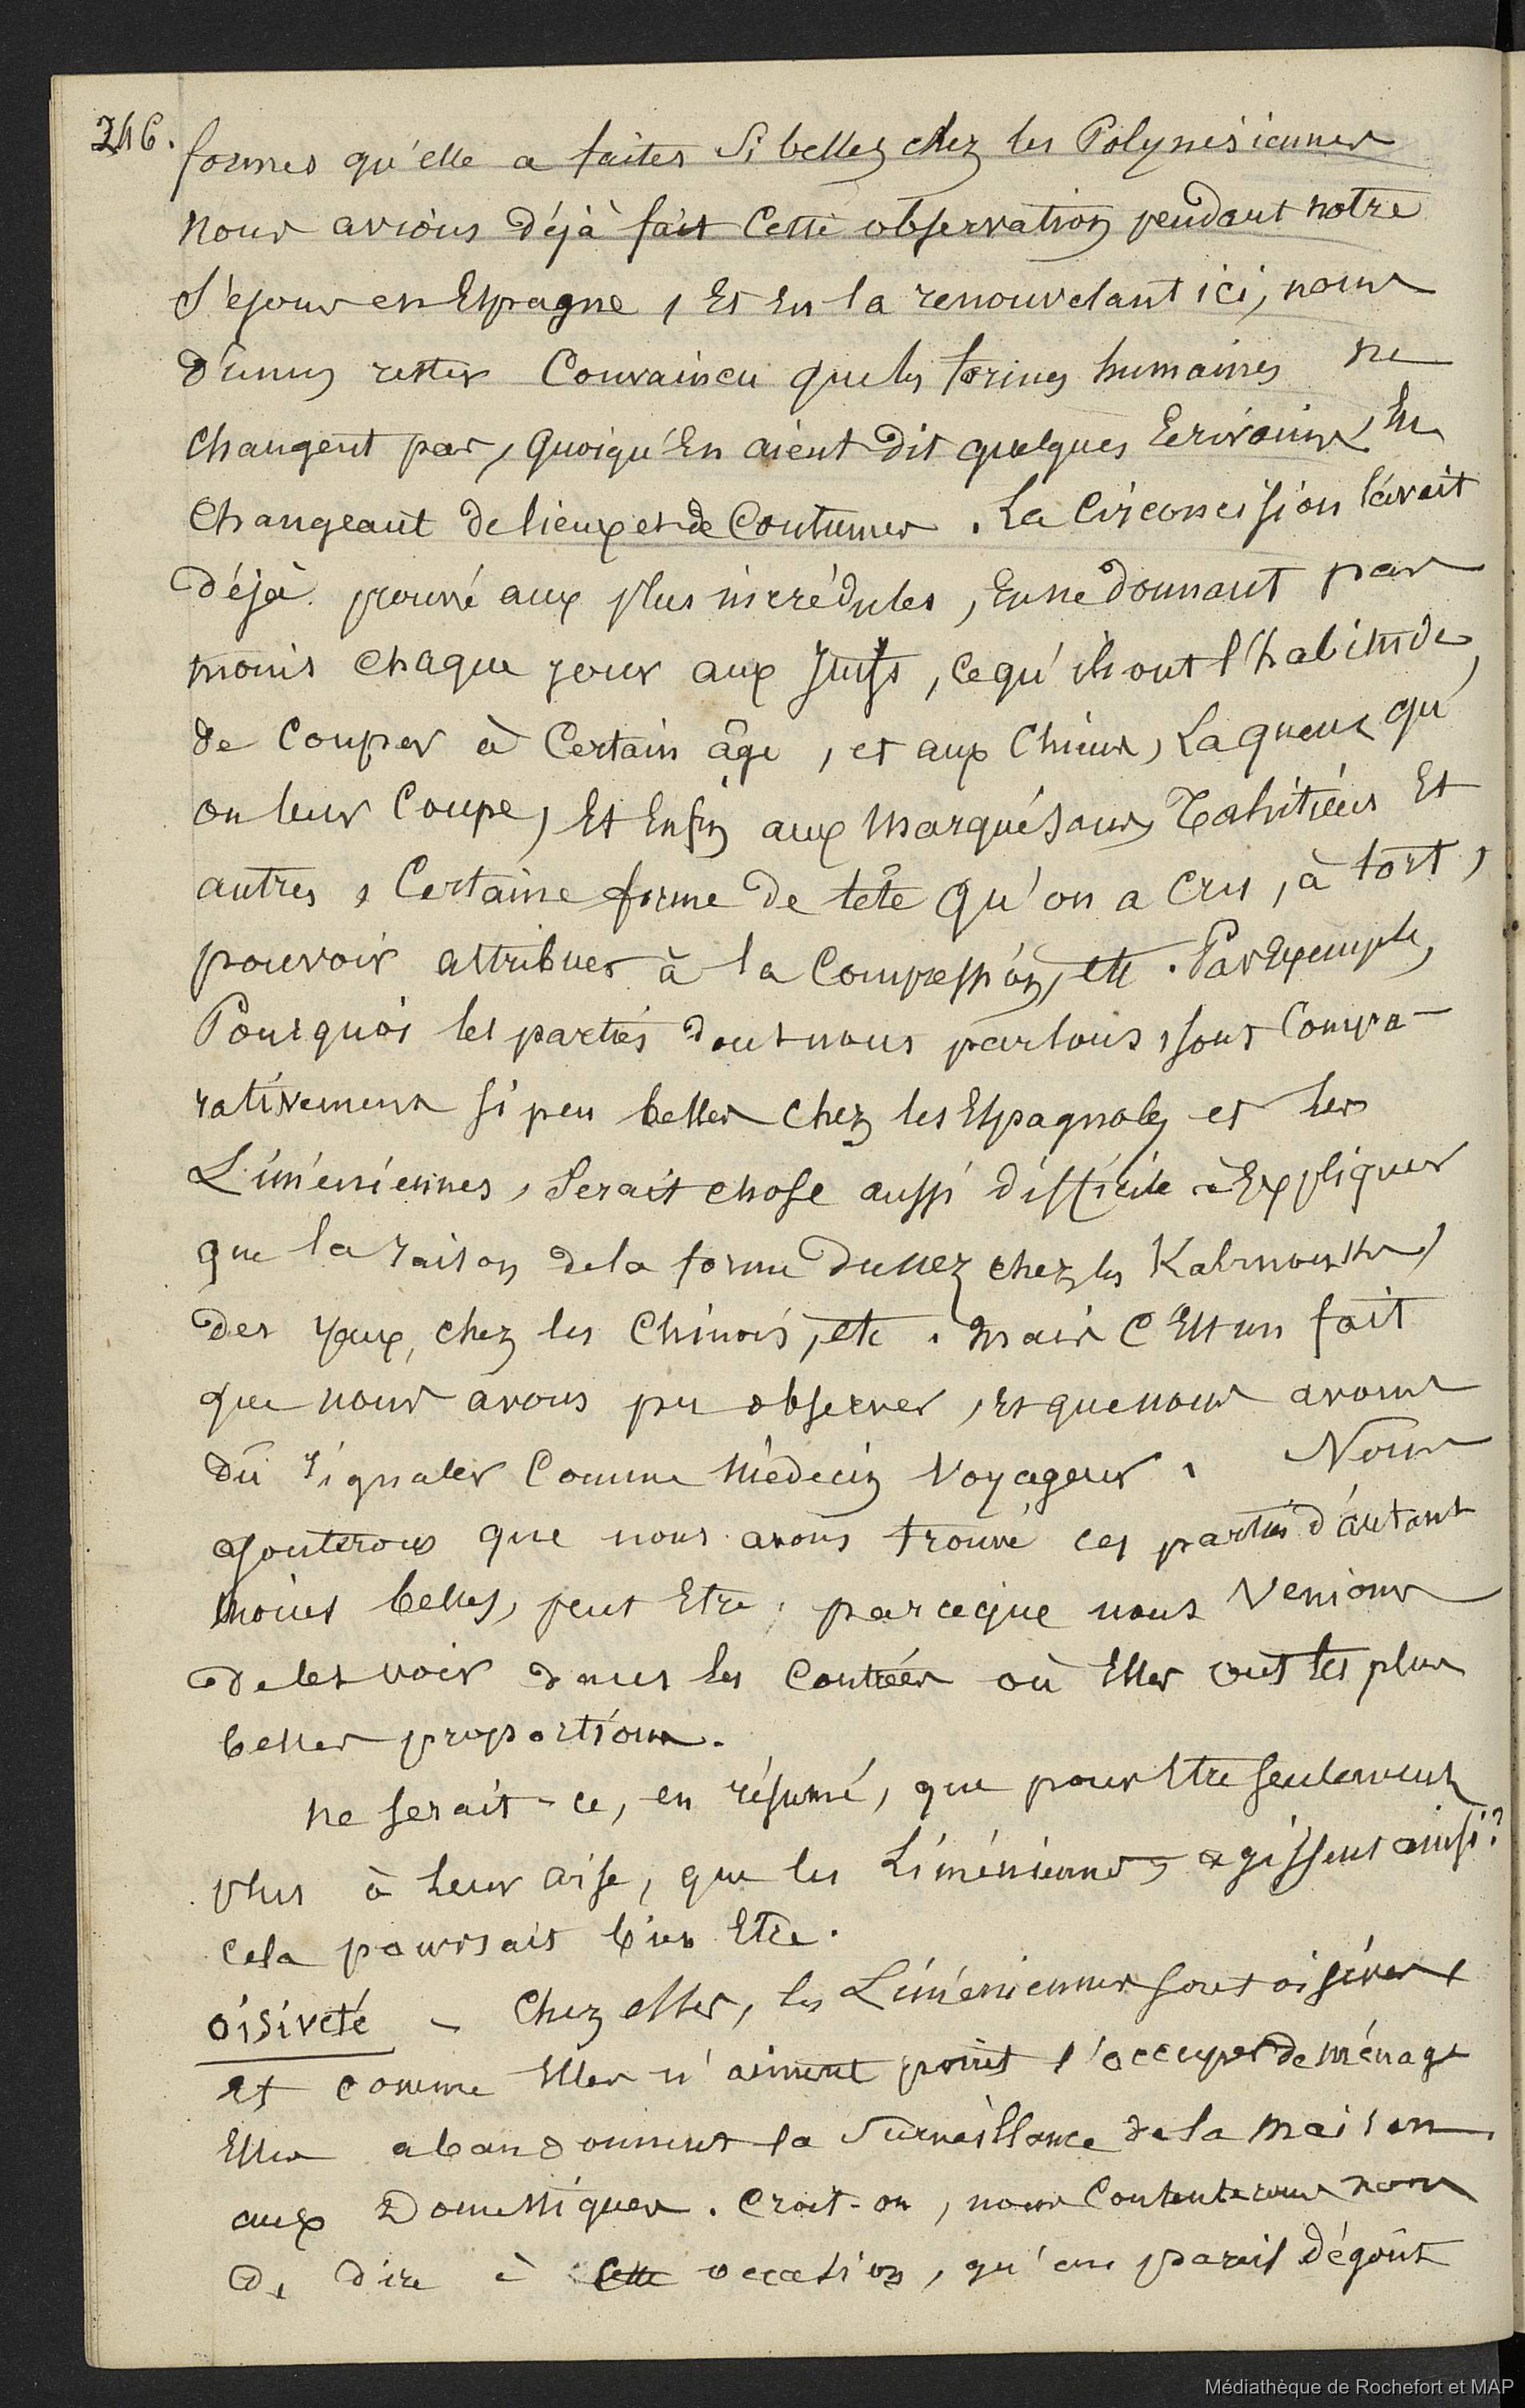 246.
formes qu'elle a faites si belles chez les Polynésiennes
nous avions déjà fait cette observation pendant notre
séjour en Espagne, et en la renouvelant ici, nous
dûmes rester convaincu que les formes humaines ne
changent pas, quoiqu'en aient dit quelques Ecrivains, en
changeant de lieux et de coutumes. La Circoncision l'avait
déjà prouvé aux plus incrédules, en ne donnant pas
moins chaque jour aux Juifs, ce qu'ils ont l'habitude,
de couper à certain âge, et aux chiens, la queue qu'
on leur coupe, et enfin aux Marquésans, Tahitiens et
autres, certaine forme de tête qu'on a cru, à tort,
pouvoir attribuer à la compression, etc. Par exemple,
Pourquoi les parties dont nous parlons, sont compa-
rativement si peu belles chez les Espagnoles et les
Liméniennes, serait chose aussi difficile à expliquer
que la raison de la forme du nez chez les Kalmouks,
des yeux, chez les Chinois, etc. mais c'est un fait
que nous avons pu observer, et que nous avons
dû signaler comme Médecin voyageur. Nous
ajouterons que nous avons trouvé ces parties d'autant
moins belles, peut être, parceque nous venions
de les voir dans les contrées où elles ont les plus
belles proportions.
ne serait-ce, en résumé, que pour être seulement
plus à leur aise, que les Liméniennes agissent ainsi?
cela pourrait bien être.
oisiveté - Chez elles, les Liméniennes sont oisives,
et comme elles n'aiment point s'occuper de ménage
Elles abandonnent la surveillance de la maison
aux Domestiques. Croit-on, nous contenterons nous
de dire à cette occasion, qu'un pareil dégoût
Médiathèque de Rochefort et MAP